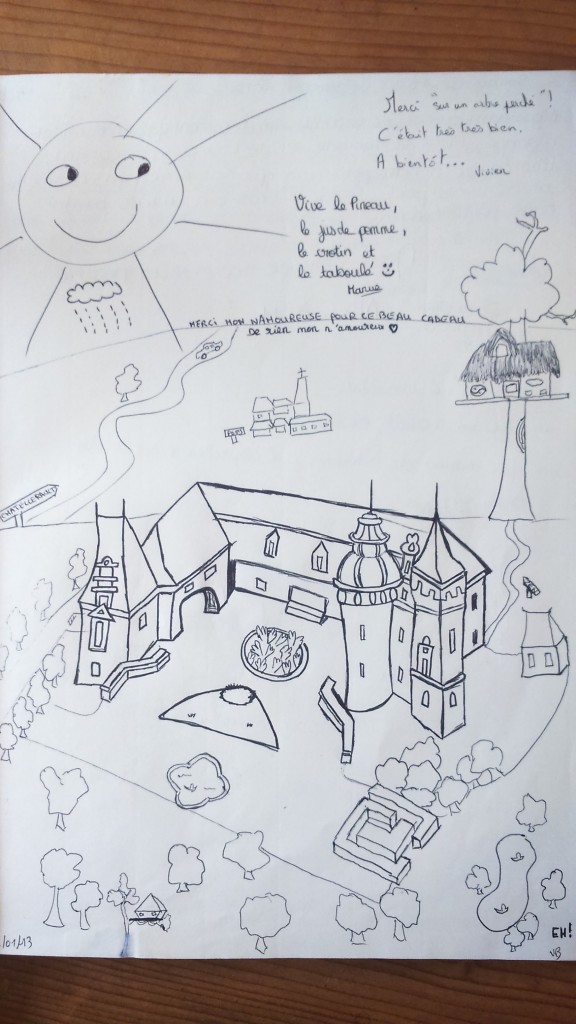 Merci "sur un arbre perché"!
C'était très très bien.
A bientôt...
Vivien
Vive le Pineau,
le jus de pomme,
le crotin et
le taboulé
Manue
MERCI MON NAMOUREUSE POUR CE BEAU CADEAU
De rien mon n'amoureux
CHATELLERAULT
/01/13
EH!
VB